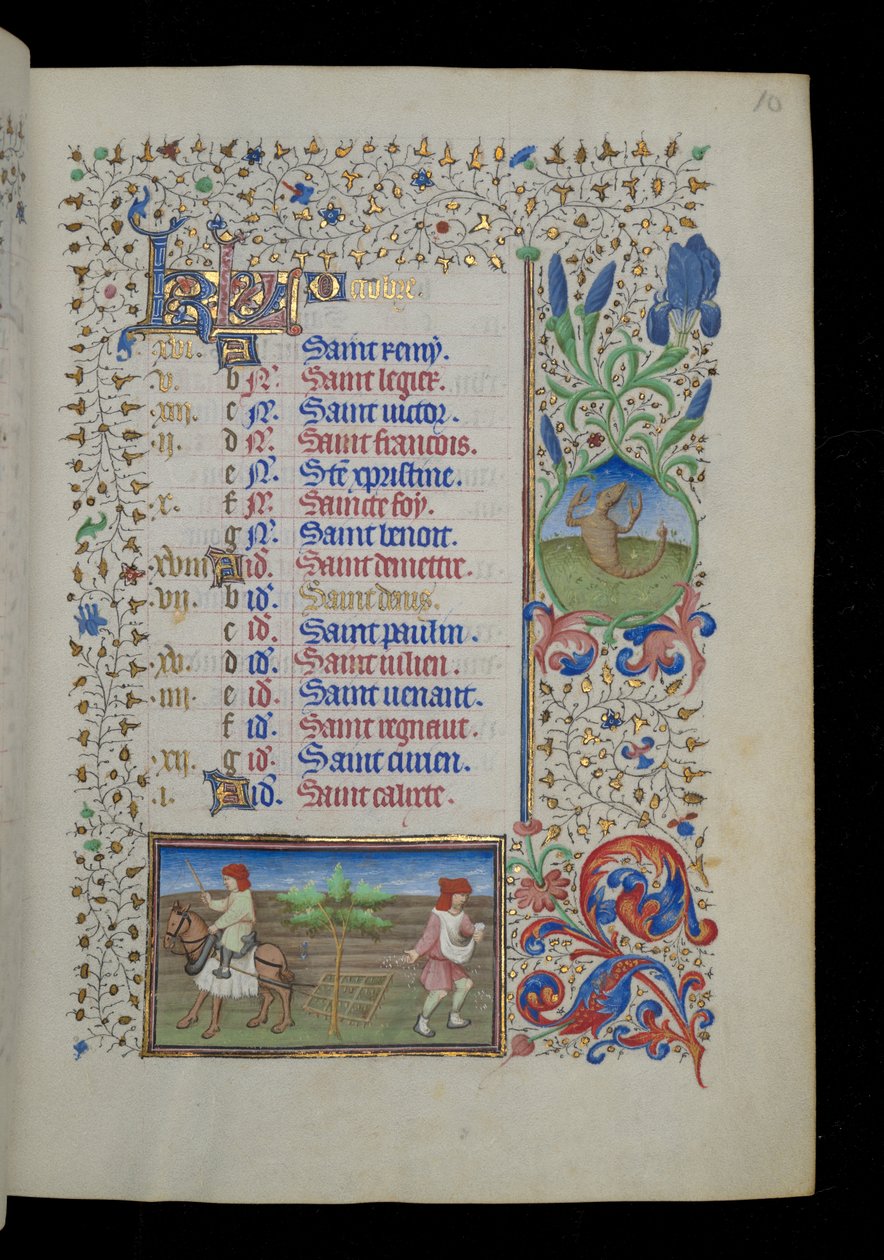 10
KL Octobre
.xvi. A Saint remy.
.v. b N. Saint legier.
.xiii. c N. Saint uictor.
.ii. d N. Saint francois.
e N. Ste xpristine.
.x. f N. Saincte foy.
g N. Saint benoit.
.xviii A id. Saint demettir.
.vii. b id. Saint denis.
c id. Saint paulin.
.xv. d id. Saint iulien.
.iiii. e id. Saint uenant.
f id. Saint regnaut.
.xii. g id. Saint
.i. A id. Saint calixte.